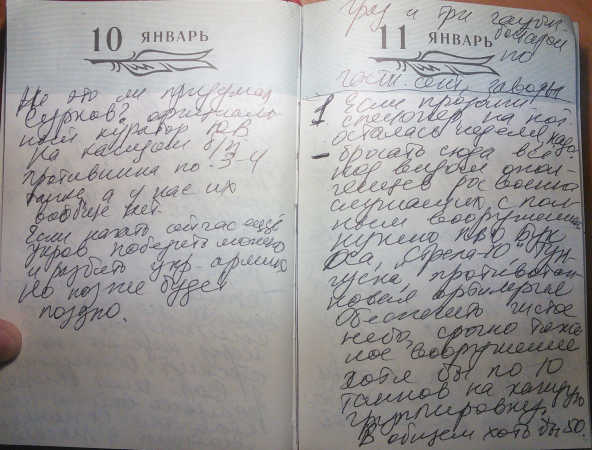 10 ЯНВАРЬ
Не это ли придумал
Сурков? официаль-
ный куратор ЮВ
На каждом б/п
противника по 3-4
танка, а у нас их
вообще нет.
Если начать сейчас ещё
укров побереть можно
и разбить укр армию
но позже будет
поздно.
11 ЯНВАРЬ
Груз и три
по
заводы
1 Если
на
осталась неделя, надо
– бросать сюда всё
под видом опол-
ченцев
с пол-
ным вооружением
нужно ПРО Бук
Оса, "Стрела-10" Тун-
гуска, противотан-
ковая артиллерия
обеспечить чистое
небо, срочно тяже-
лое вооружение
хотя бы по 10
танков на каждую
группировку.
В общем хоть бы 50.